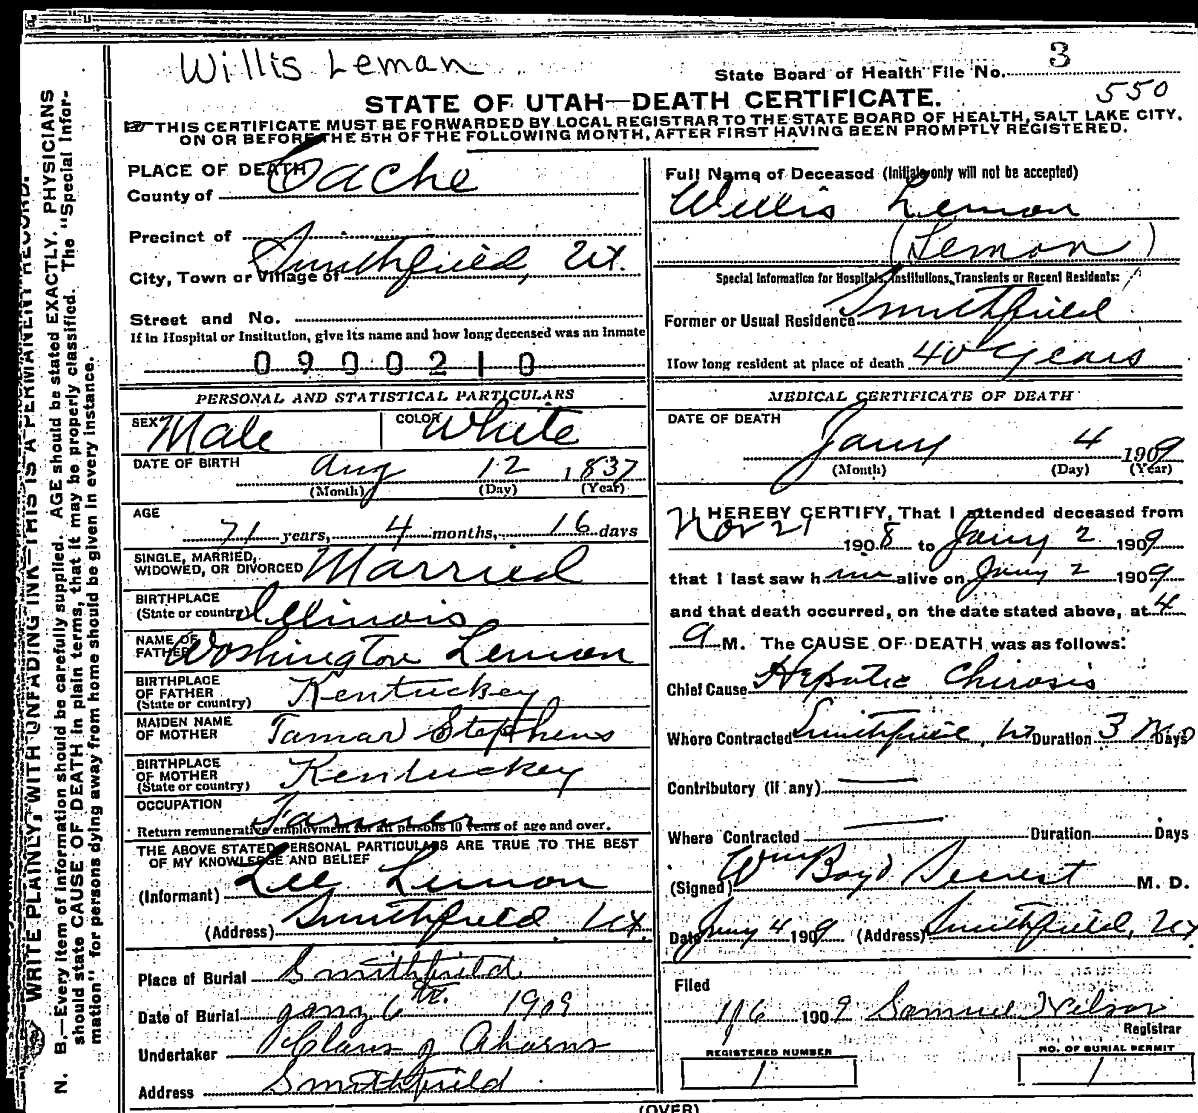 Willis Leman
State Board of Health File No. 3
550
STATE OF UTAH—DEATH CERTIFICATE.
THIS CERTIFICATE MUST BE FORWARDED BY LOCAL REGISTRAR TO THE STATE BOARD OF HEALTH, SALT LAKE CITY,
ON OR BEFORE THE 5TH OF THE FOLLOWING MONTH, AFTER FIRST HAVING BEEN PROMPTLY REGISTERED.
WRITE PLAINLY, WITH UNFADING INK—THIS IS A PERMANENT RECORD.
N. B.—Every item of information should be carefully supplied. AGE should be stated EXACTLY. PHYSICIANS
should state CAUSE OF DEATH in plain terms, that it may be properly classified. The "Special Infor-
mation" for persons dying away from home should be given in every instance.
PLACE OF DEATH
County of Cache
Precinct of
City, Town or Village of Smithfield, Ut.
Street and No.
If in Hospital or Institution, give its name and how long deceased was an inmate
0900210
PERSONAL AND STATISTICAL PARTICULARS
SEX Male COLOR White
DATE OF BIRTH Aug 12 1837
(Month) (Day) (Year)
AGE
71 years, 4 months, 16 days
SINGLE, MARRIED,
WIDOWED, OR DIVORCED Married
BIRTHPLACE
(State or country) Illinois
NAME OF
FATHER Washington Lemon
BIRTHPLACE
OF FATHER
(State or country) Kentuckey
MAIDEN NAME
OF MOTHER Tamar Stephens
BIRTHPLACE
OF MOTHER
(State or country) Kentuckey
OCCUPATION Farmer
Return remunerative employment for all persons 10 years of age and over.
THE ABOVE STATED PERSONAL PARTICULARS ARE TRUE TO THE BEST
OF MY KNOWLEDGE AND BELIEF
(Informant) Lee Lemon
(Address) Smithfield Ut.
Place of Burial Smithfield
Date of Burial Jany 6th. 1909
Undertaker
Address Smithfield
Full Name of Deceased (Initials only will not be accepted)
Willis Lemon
(Lemon)
Special Information for Hospitals, Institutions, Transients or Recent Residents:
Former or Usual Residence Smithfield
How long resident at place of death 40 years
MEDICAL CERTIFICATE OF DEATH
DATE OF DEATH
Jany 4 1909
(Month) (Day) (Year)
I HEREBY CERTIFY, That I attended deceased from
Nov 21 1908 to Jany 2 1909
that I last saw him alive on Jany 2 1909
and that death occurred, on the date stated above, at 4
a M. The CAUSE OF DEATH was as follows:
Chief Cause Hepatic Chirosis
Where Contracted Smithfield, Ut Duration 3 Mo Days
Contributory (if any)
Where Contracted Duration Days
(Signed) Wm Boyd M. D.
Date Jany 4 1909 (Address) Smithfield, Ut
Filed
1/6 1909 Samuel Nelson
Registrar
REGISTERED NUMBER
1
NO. OF BURIAL PERMIT
1
(OVER)